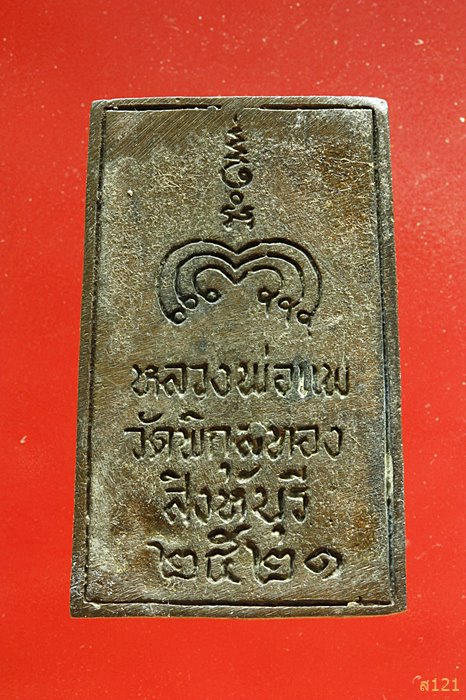 หลวงพ่อแพ
วัดพิกุลทอง
สิงห์บุรี
๒๕๒๑
ส121